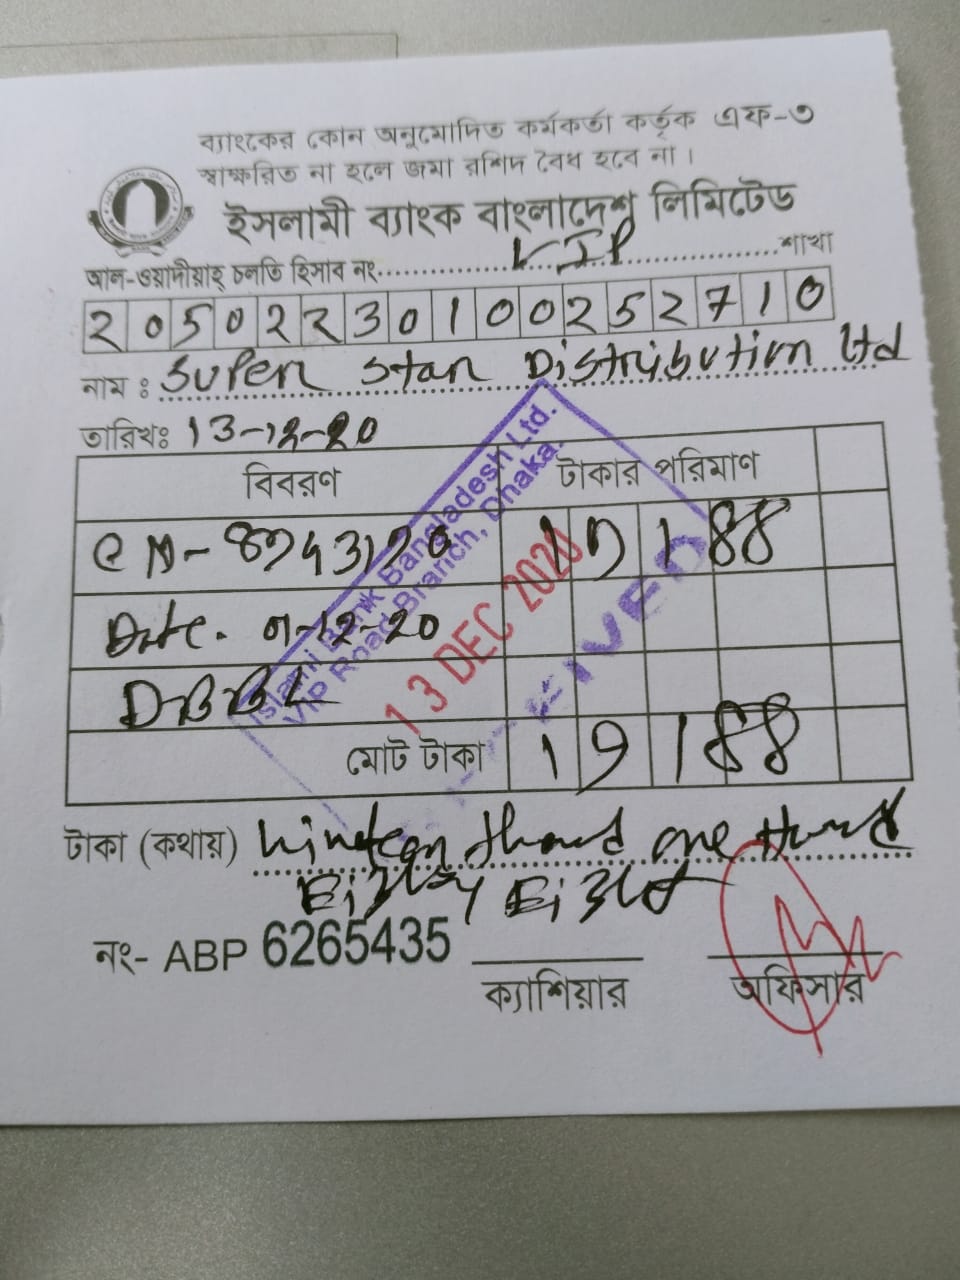 ব্যাংকের কোন অনুমোদিত কর্মকর্তা কর্তৃক এফ-৩
স্বাক্ষরিত না হলে জমা রশিদ বৈধ হবে না।
ইসলামী ব্যাংক বাংলাদেশ লিমিটেড
আল-ওয়াদীয়াহ্ চলতি হিসাব নং VIP শাখা
20502230100252710
নাম : Super Star Distribution Ltd
তারিখঃ 13-12-20
বিবরণ টাকার পরিমাণ
19188
Date. 01-12-20
DBBL
মোট টাকা 19188
Islami Bank Bangladesh Ltd.
VIP Road Branch, Dhaka.
13 DEC 2020
টাকা (কথায়) Nineteen thound one Hund
Eighty Eight
নং- ABP 6265435
ক্যাশিয়ার অফিসার